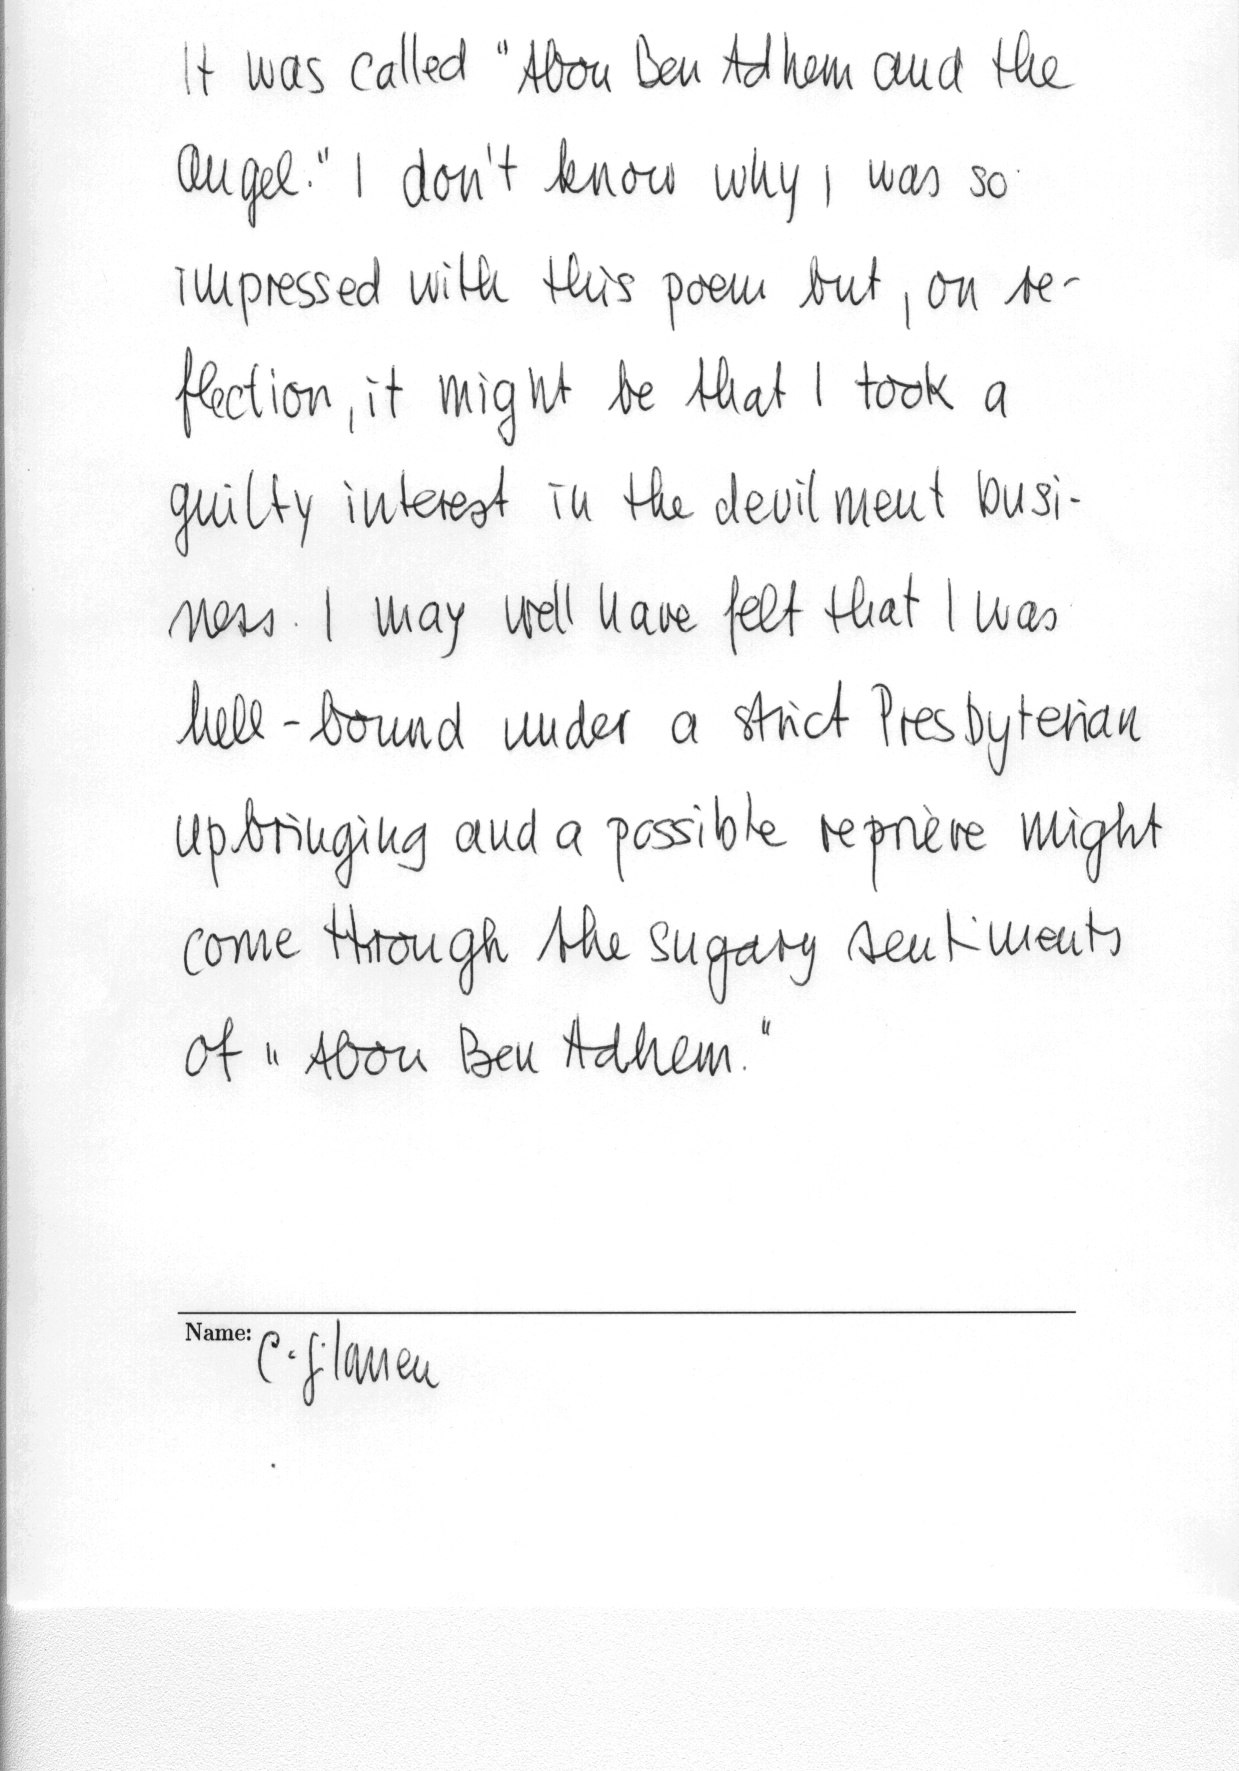 It was called "Abou Ben Adhem and the
Angel." I don't know why I was so
impressed with this poem but, on re-
flection, it might be that I took a
guilty interest in the devilment busi-
ness. I may well have felt that I was
hell-bound under a strict Presbyterian
upbringing and a possible reprieve might
come through the sugary sentiments
of "Abou Ben Adhem."
Name:
C.